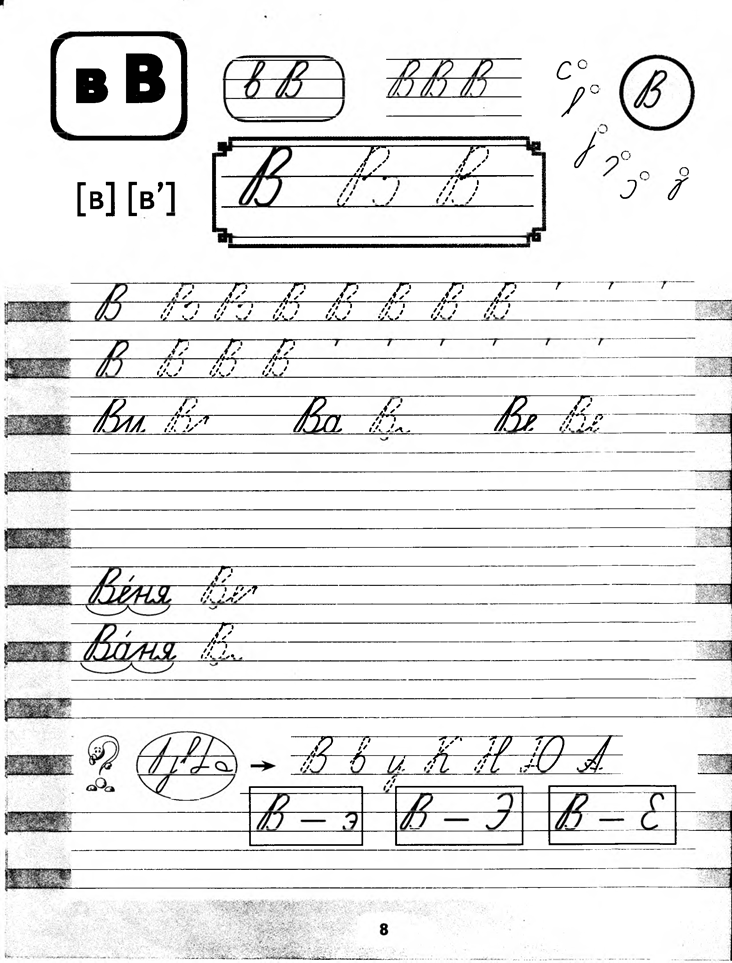 в В
в В
В В В
В
[в] [в']
В В В
В В В В В В В В
В В В В
Ви Ва Ве Ве
Ве́ня Ве
Ва́ня В
В в у К Н Ю А
В – э
В – Э
В – Е
8